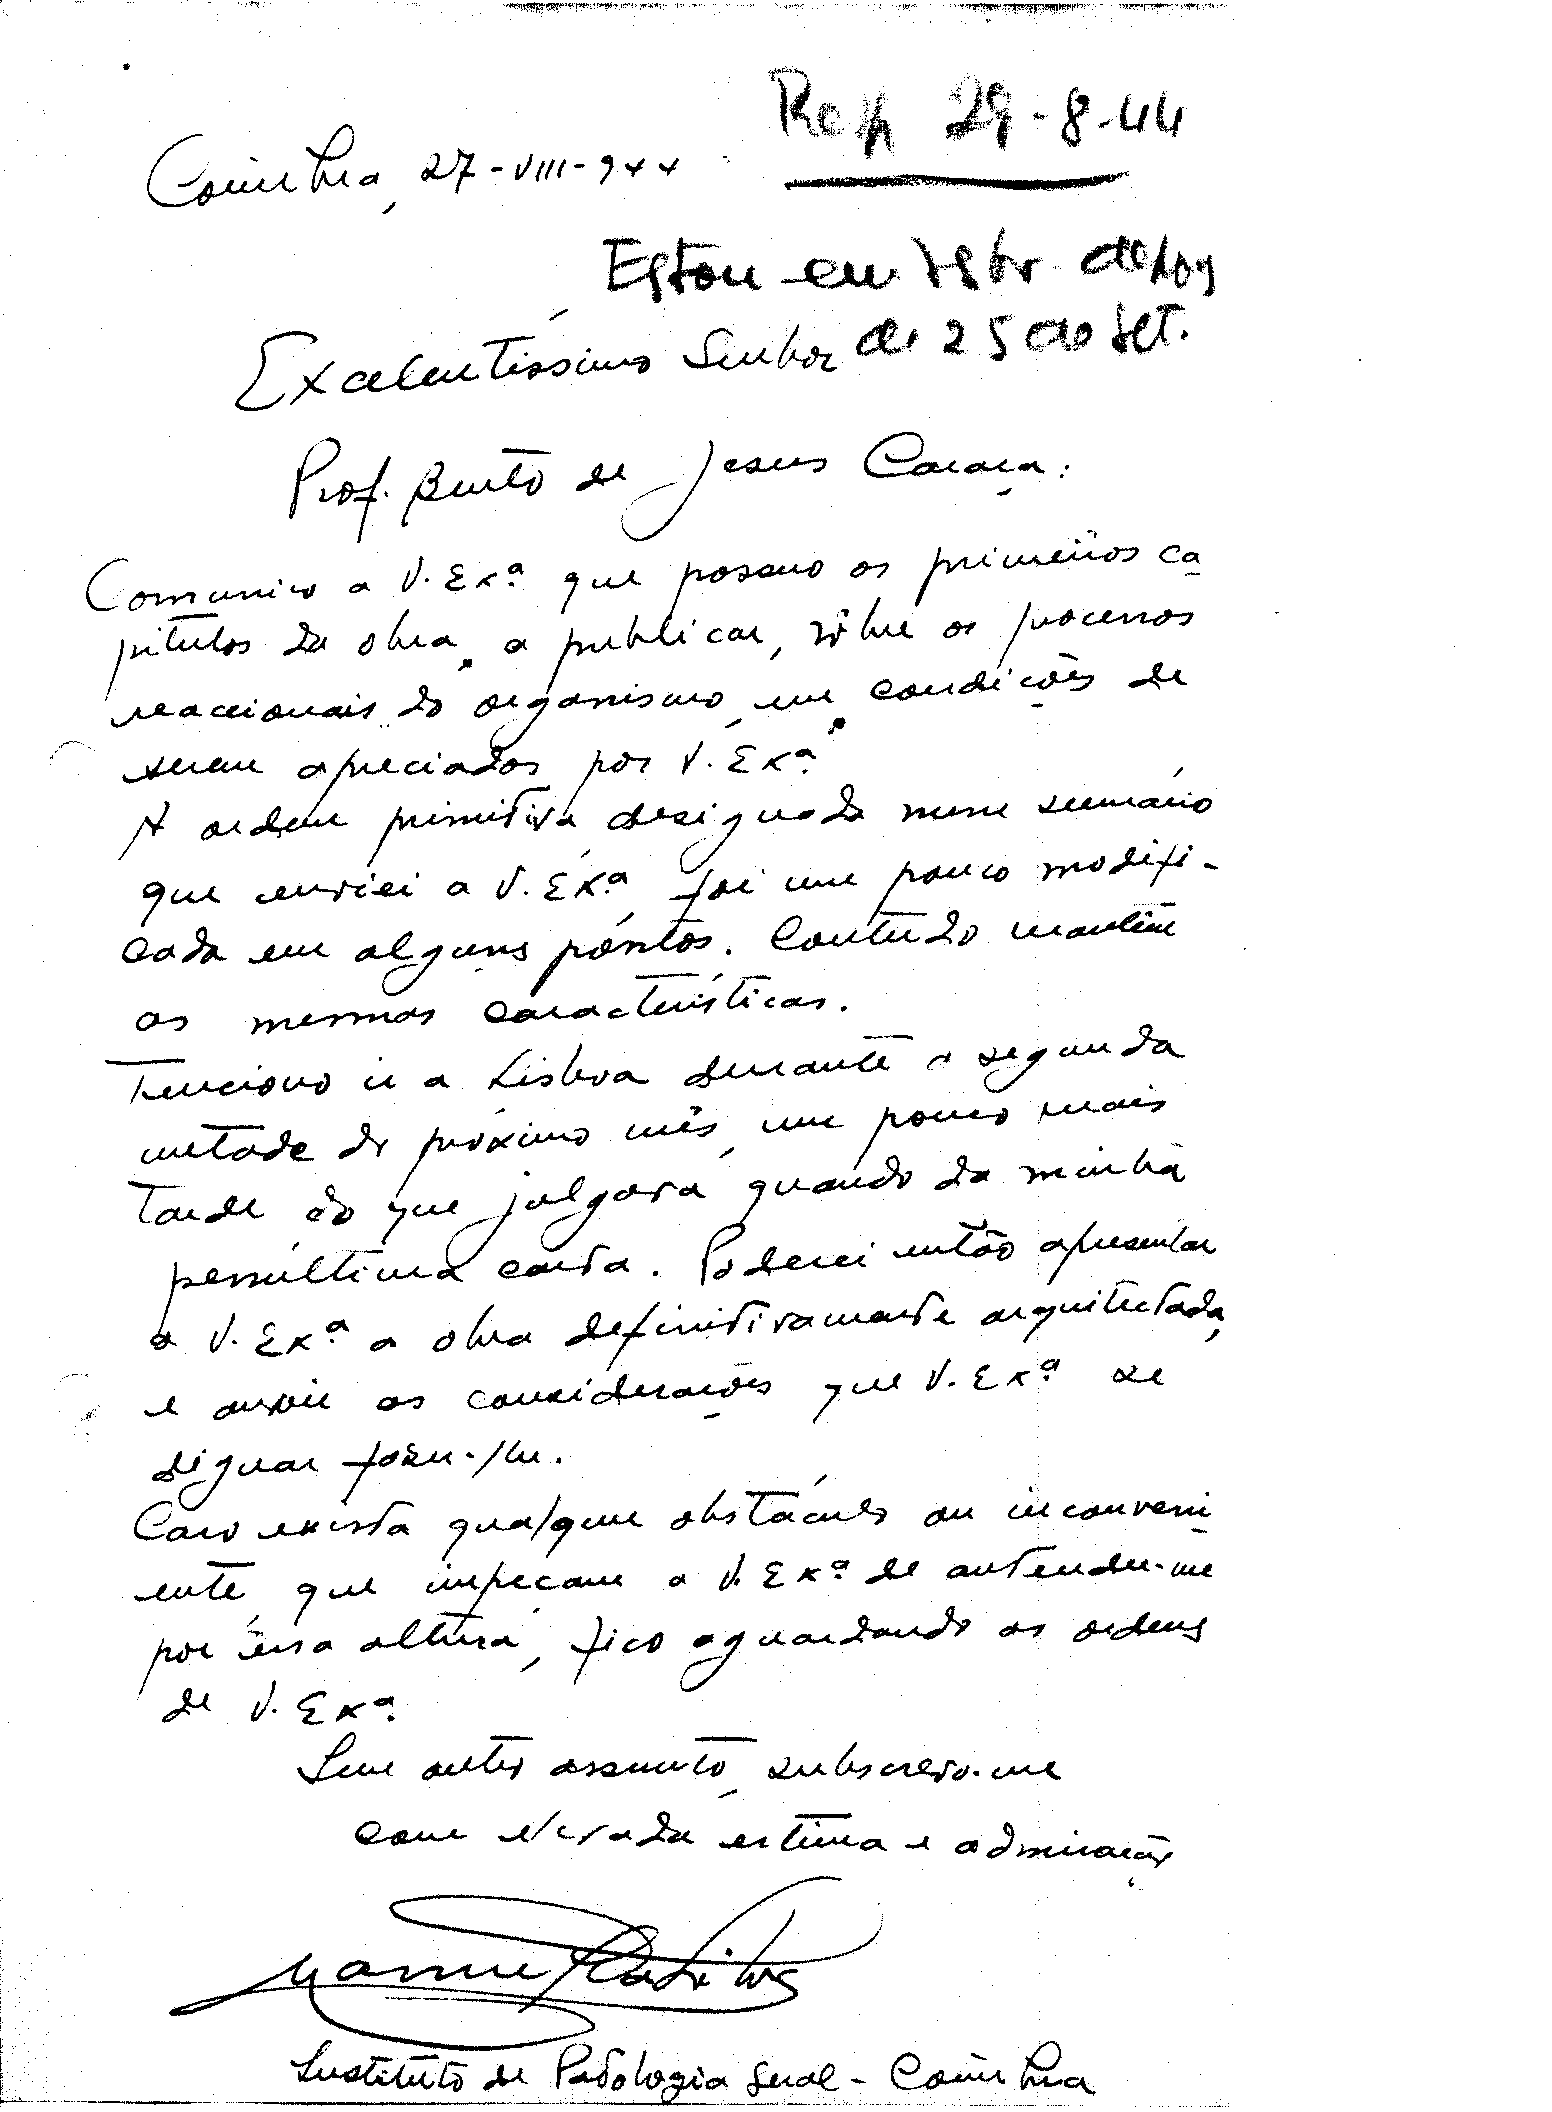 Resp 29-8-44
Coimbra, 27-VIII-944
Estou em Lisbr. depois
de 25 de Set.
Excelentíssimo Senhor
Prof. Bento de Jesus Caraça:
Comunico a V. Exª. que possuo os primeiros ca
pítulos da obra, a publicar, sôbre os processos
reaccionais do organismo, em condições de
serem apreciados por V. Exª.
A ordem primitiva designada num sumário
que enviei a V. Exª. foi um pouco modifi-
cada em alguns pontos. Contudo mantém
as mesmas características.
Tenciono ir a Lisboa durante a segunda
metade do próximo mês, um pouco mais
tarde do que julgava quando da minha
penúltima carta. Poderei então apresentar
a V. Exª. a obra definitivamente arquitectada,
e ouvir as considerações que V. Exª. se
dignar fazer-lhe.
Caso exista qualquer obstáculo ou inconveni
ente, que impeçam a V. Exª. de atender-me
por essa altura, fico aguardando as ordens
de V. Exª.
Sem outro assunto, subscrevo-me
com elevada estima e admiração
Manuel da Silva
Instituto de Patologia Geral - Coimbra